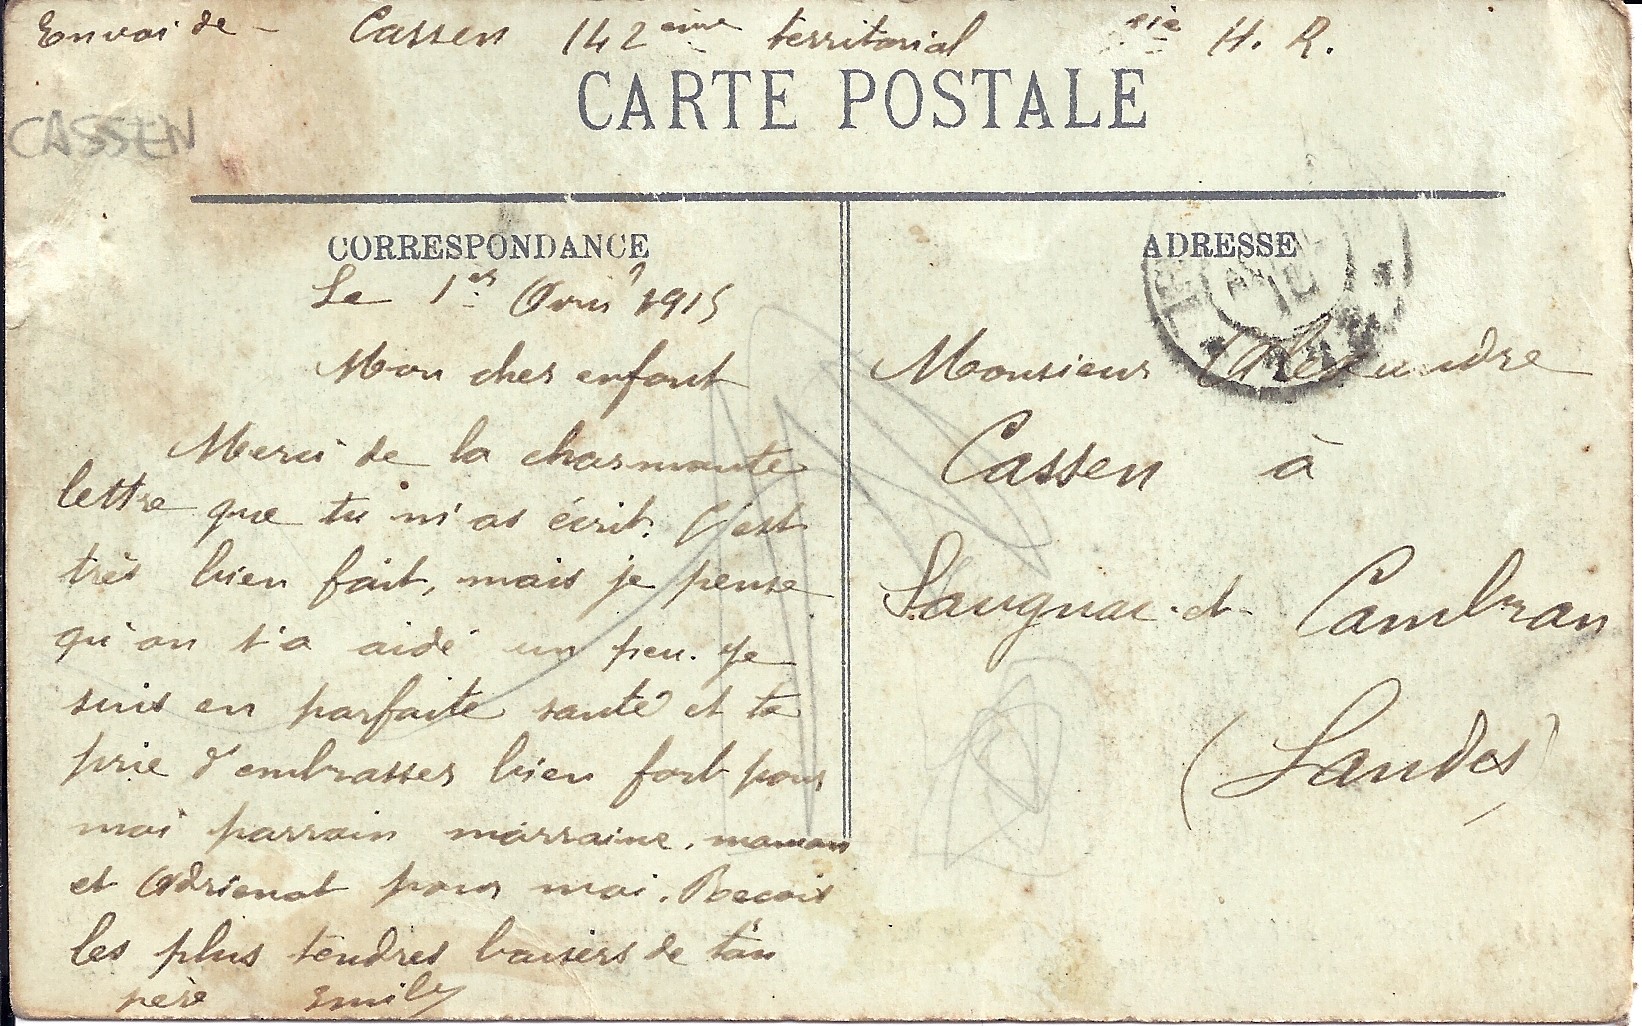 Envoi de - Cassen 142 eme territorial cie H. R.
CARTE POSTALE
CASSEN
CORRESPONDANCE
Le 1er Avril 1915
Mon cher enfant
Merci de la charmante
lettre que tu m'as écrit. C'est
très bien fait, mais je pense
qu'on t'a aidé un peu. Je
suis en parfaite santé et te
prie d'embrasser bien fort pour
moi parrain marraine, maman
et Adrienot pour moi. Reçois
les plus tendres baisers de ton
père Emile
ADRESSE
Monsieur Alexandre
Cassen à
Saugnac-et-Cambran
(Landes)